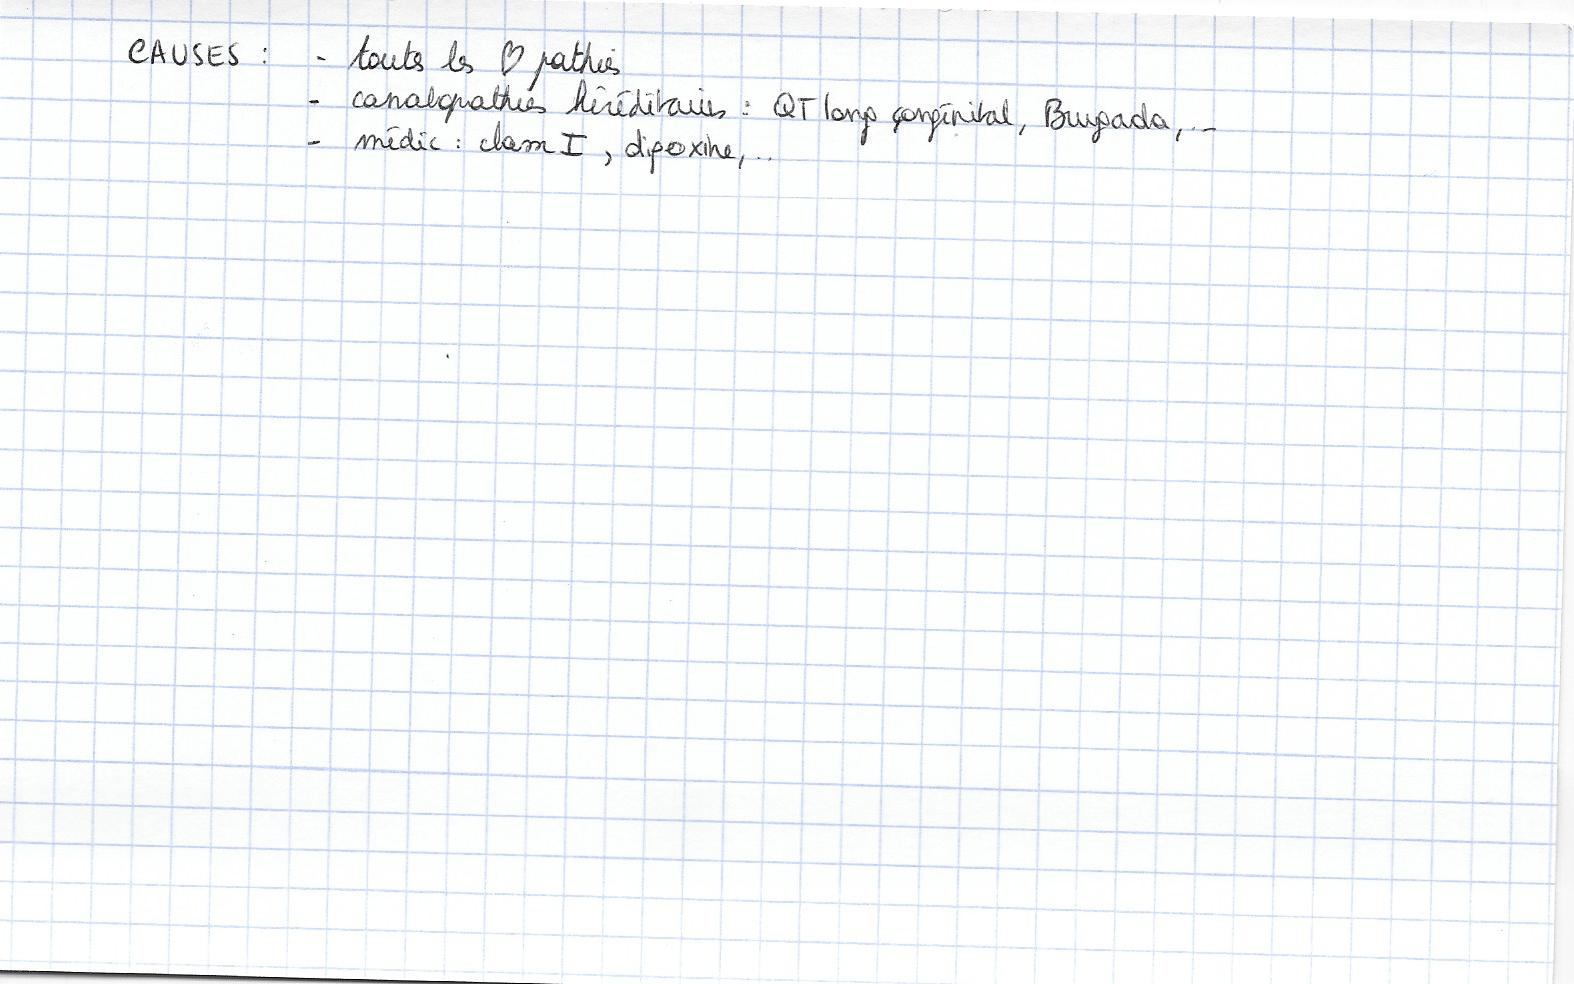 CAUSES : - toutes les ♡ pathies
- canalopathies héréditaires : QT long congénital, Brugada, ...
- médic : classe I, digoxine, ...